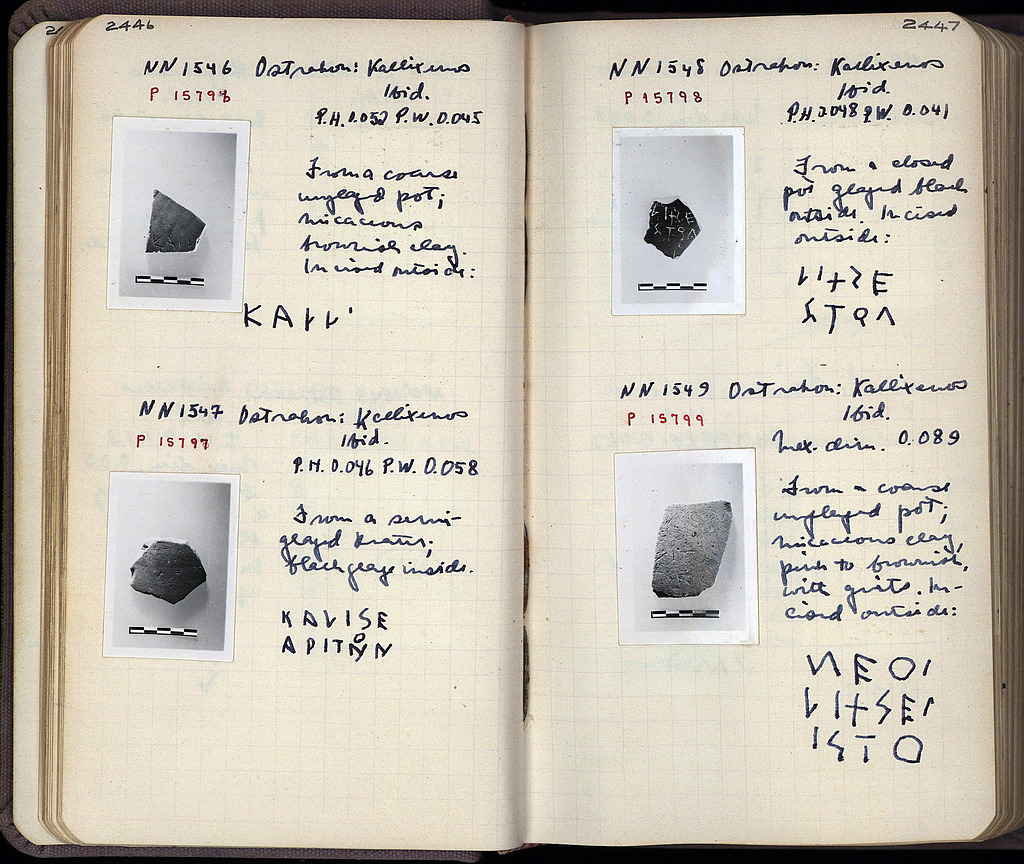 2446
NN 1546 Ostrakon: Kallixenos
P 15796
Ibid.
P.H. 0.052 P.W. 0.045
From a coarse
unglazed pot;
micaceous
brownish clay.
Incised outside:
ΚΑΛΛ
NN 1547 Ostrakon: Kallixenos
P 15797
Ibid.
P.H. 0.046 P.W. 0.058
From a semi-
glazed krater;
black glaze inside.
ΚΑΛΙΣΕ
ΑΡΙΤΟΝ
2447
NN 1548 Ostrakon: Kallixenos
P 15798
Ibid.
P.H. 0.048 P.W. 0.041
From a closed
pot glazed black
outside. Incised
outside:
NN 1549 Ostrakon: Kallixenos
P 15799
Ibid.
Max. dim. 0.089
From a coarse
unglazed pot;
micaceous clay,
pink to brownish,
with grits. In-
cised outside: